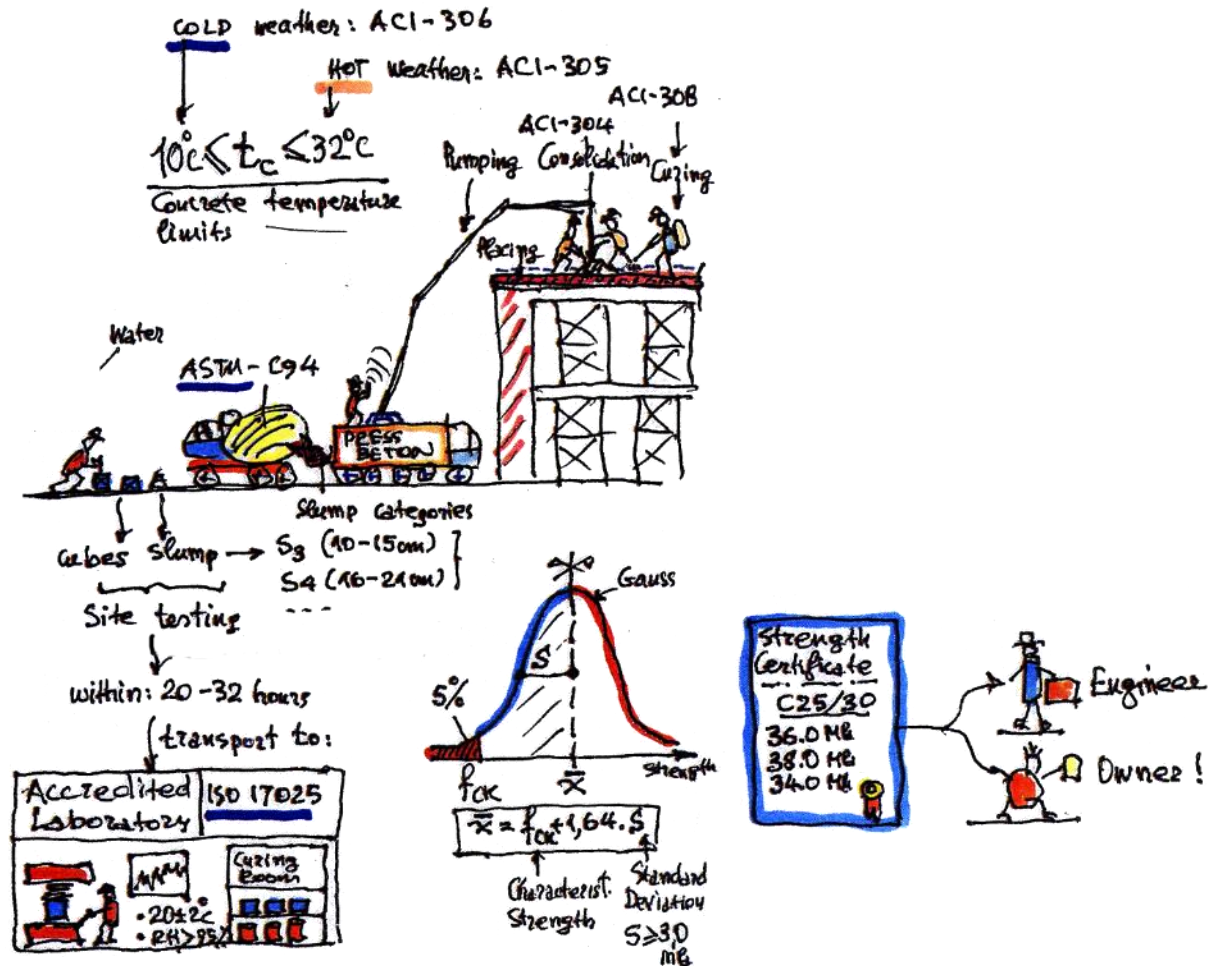 COLD weather: ACI-306
HOT weather: ACI-305
10°C ≤ tc ≤ 32°C
Concrete temperature
limits
ACI-308
ACI-304
Pumping Consolidation
Curing
Placing
Water
ASTM-C94
PRESS
BETON
Slump categories
Cubes Slump → S3 (10-15cm)
S4 (16-21cm)
Site testing
within: 20-32 hours
transport to:
Accredited
Laboratory
ISO 17025
Curing
Room
• 20±2°C
• RH>95%
Gauss
S
5%
fck
x̄
strength
x̄ = fck+1,64.S
Characterist.
Strength
Standard
Deviation
S≥3,0
MPa
Strength
Certificate
C25/30
36.0 MPa
38.0 MPa
34.0 MPa
Engineer
Owner!